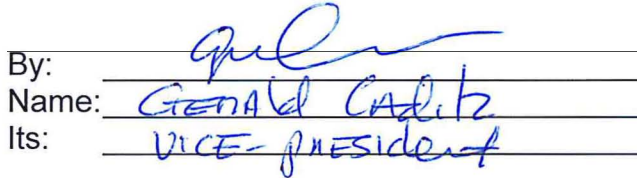 By:
Name: GERALd CAditz
Its: VICE-PRESIdent